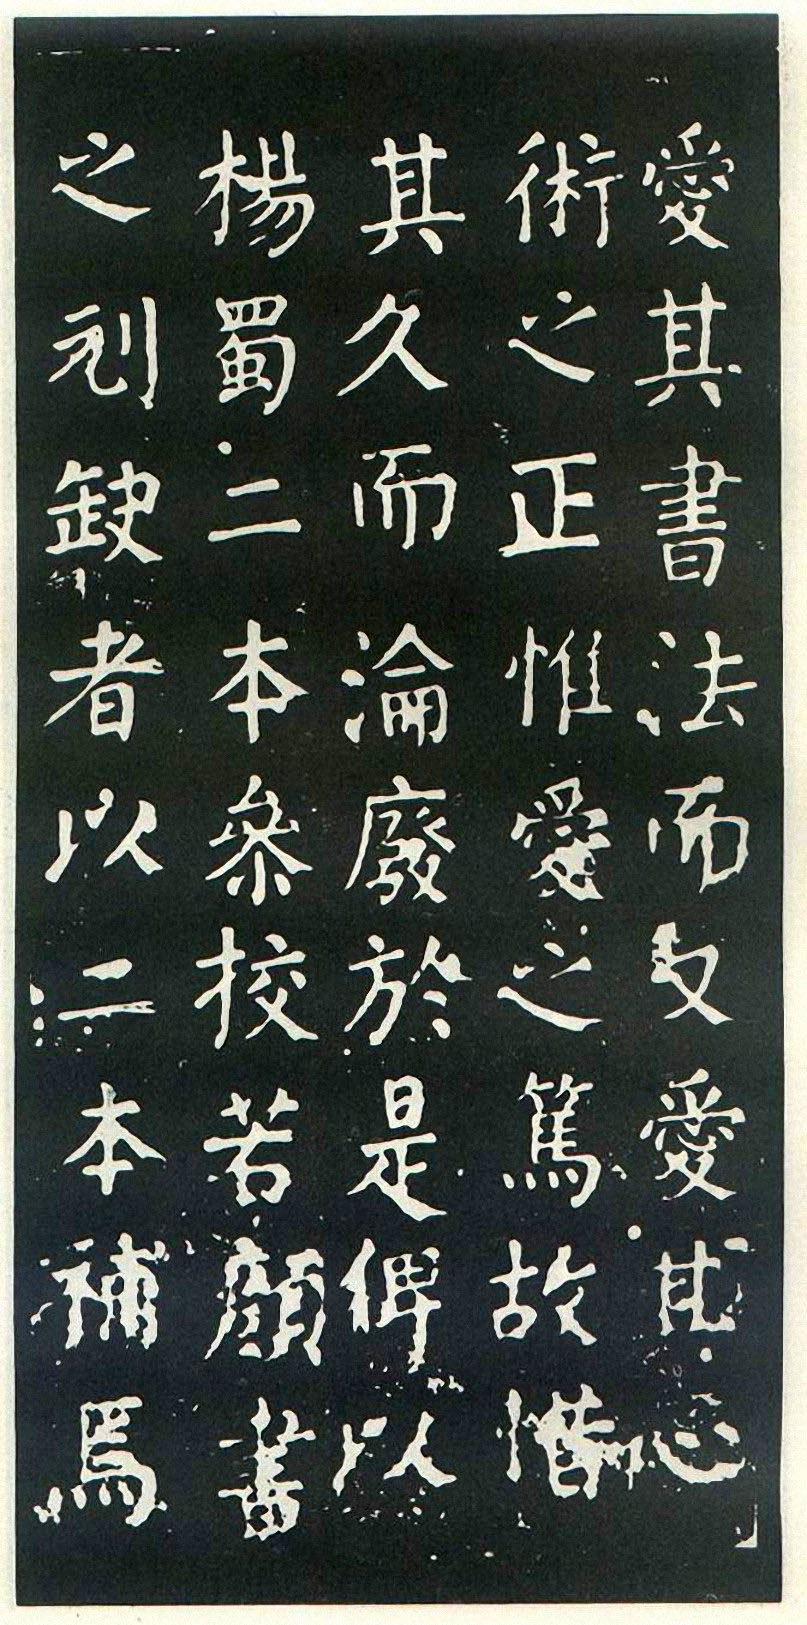 愛其書法而又愛其心
術之正惟愛之篤故惜
其久而淪廢於是俾以
楊蜀二本叅校若顔書
之刓缺者以二本補焉